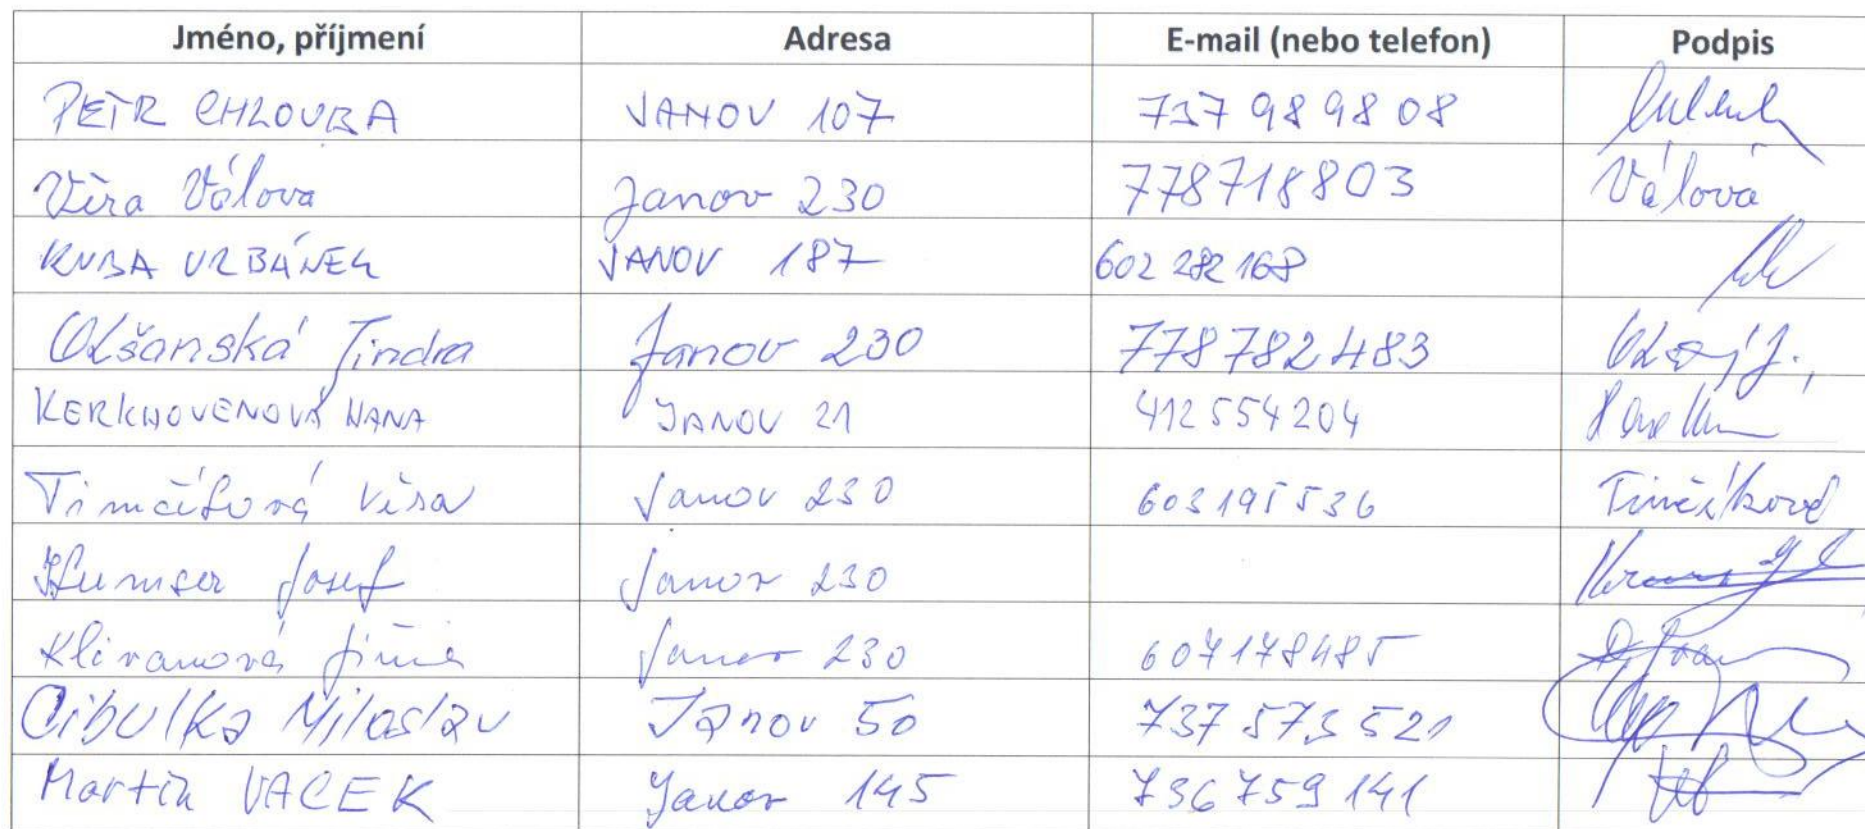 Jméno, příjmení Adresa E-mail (nebo telefon) Podpis
PETR CHLOUBA JANOV 107 737 989 808
Věra Válová Janov 230 778718803 Válová
KUBA URBÁNEK JANOV 187 602 282 168
Olšanská Jindra Janov 230 778 782 483
KERKHOVENOVÁ HANA JANOV 21 412 554 204
Timčíková Věra Janov 230 603 195 536 Timčíková
Josef Janov 230
Klivanová Janov 230 607178485
Cibulka Miloslav Janov 50 737 573 521
Martin VACEK Janov 145 736 759 141